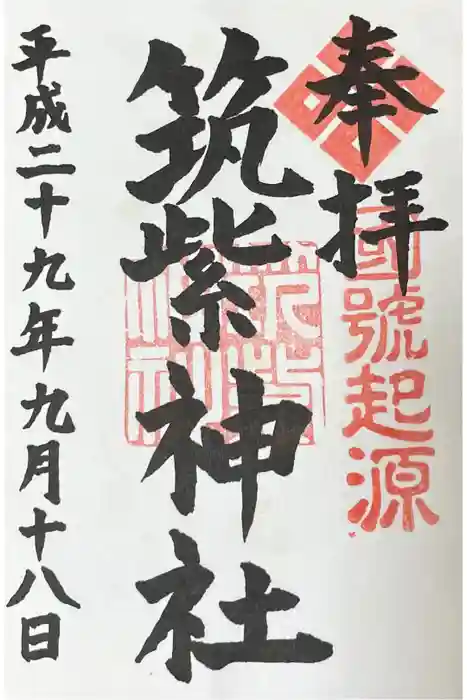 奉拝
國號起源
筑紫神社
筑紫神社
平成二十九年九月十八日